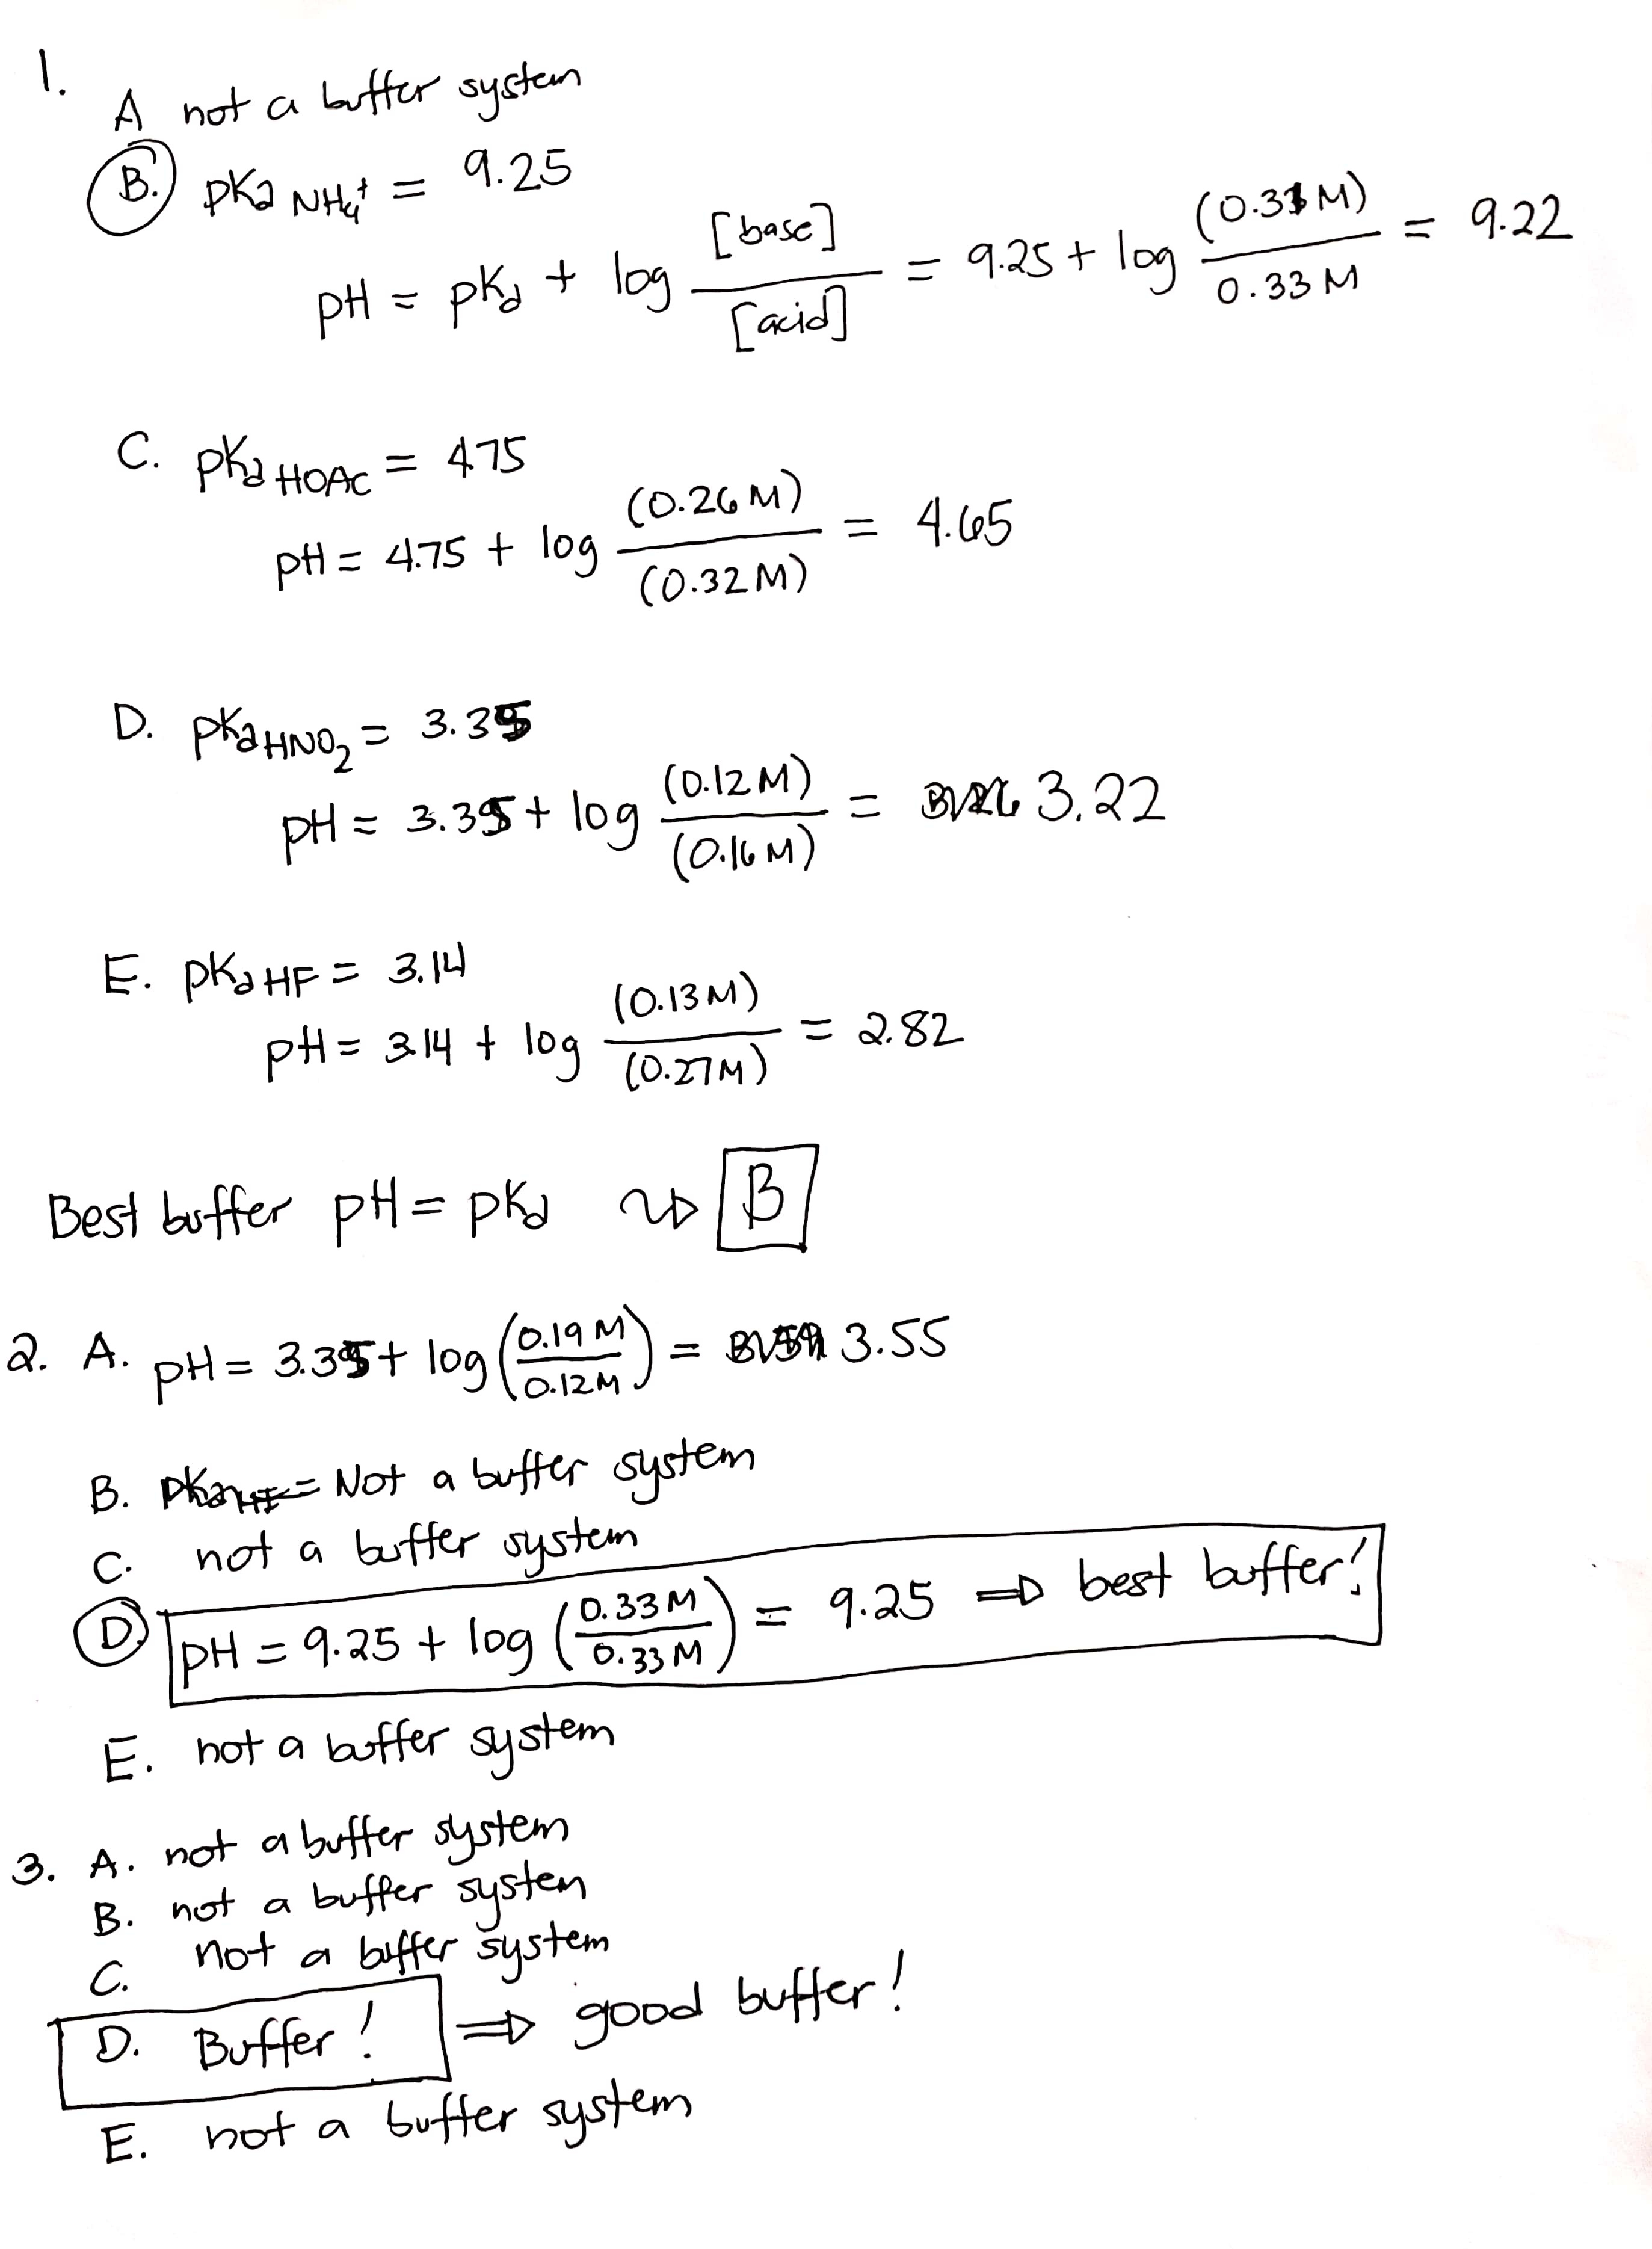 1.
A not a buffer system
B. pKa NH4+ = 9.25
pH = pKa + log [base]/[acid] = 9.25 + log (0.31 M)/0.33 M = 9.22
C. pKa HOAc = 4.75
pH = 4.75 + log (0.26 M)/(0.32 M) = 4.65
D. pKa HNO2 = 3.35
pH = 3.35 + log (0.12 M)/(0.16 M) = 3.22
E. pKa HF = 3.14
pH = 3.14 + log (0.13 M)/(0.27 M) = 2.82
Best buffer pH = pKa ⇝ B
2. A. pH = 3.35 + log (0.19 M/0.12 M) = 3.55
B. Not a buffer system
C. not a buffer system
D. pH = 9.25 + log (0.33 M/0.33 M) = 9.25 ⇒ best buffer!
E. not a buffer system
3. A. not a buffer system
B. not a buffer system
C. not a buffer system
D. Buffer! ⇒ good buffer!
E. not a buffer system